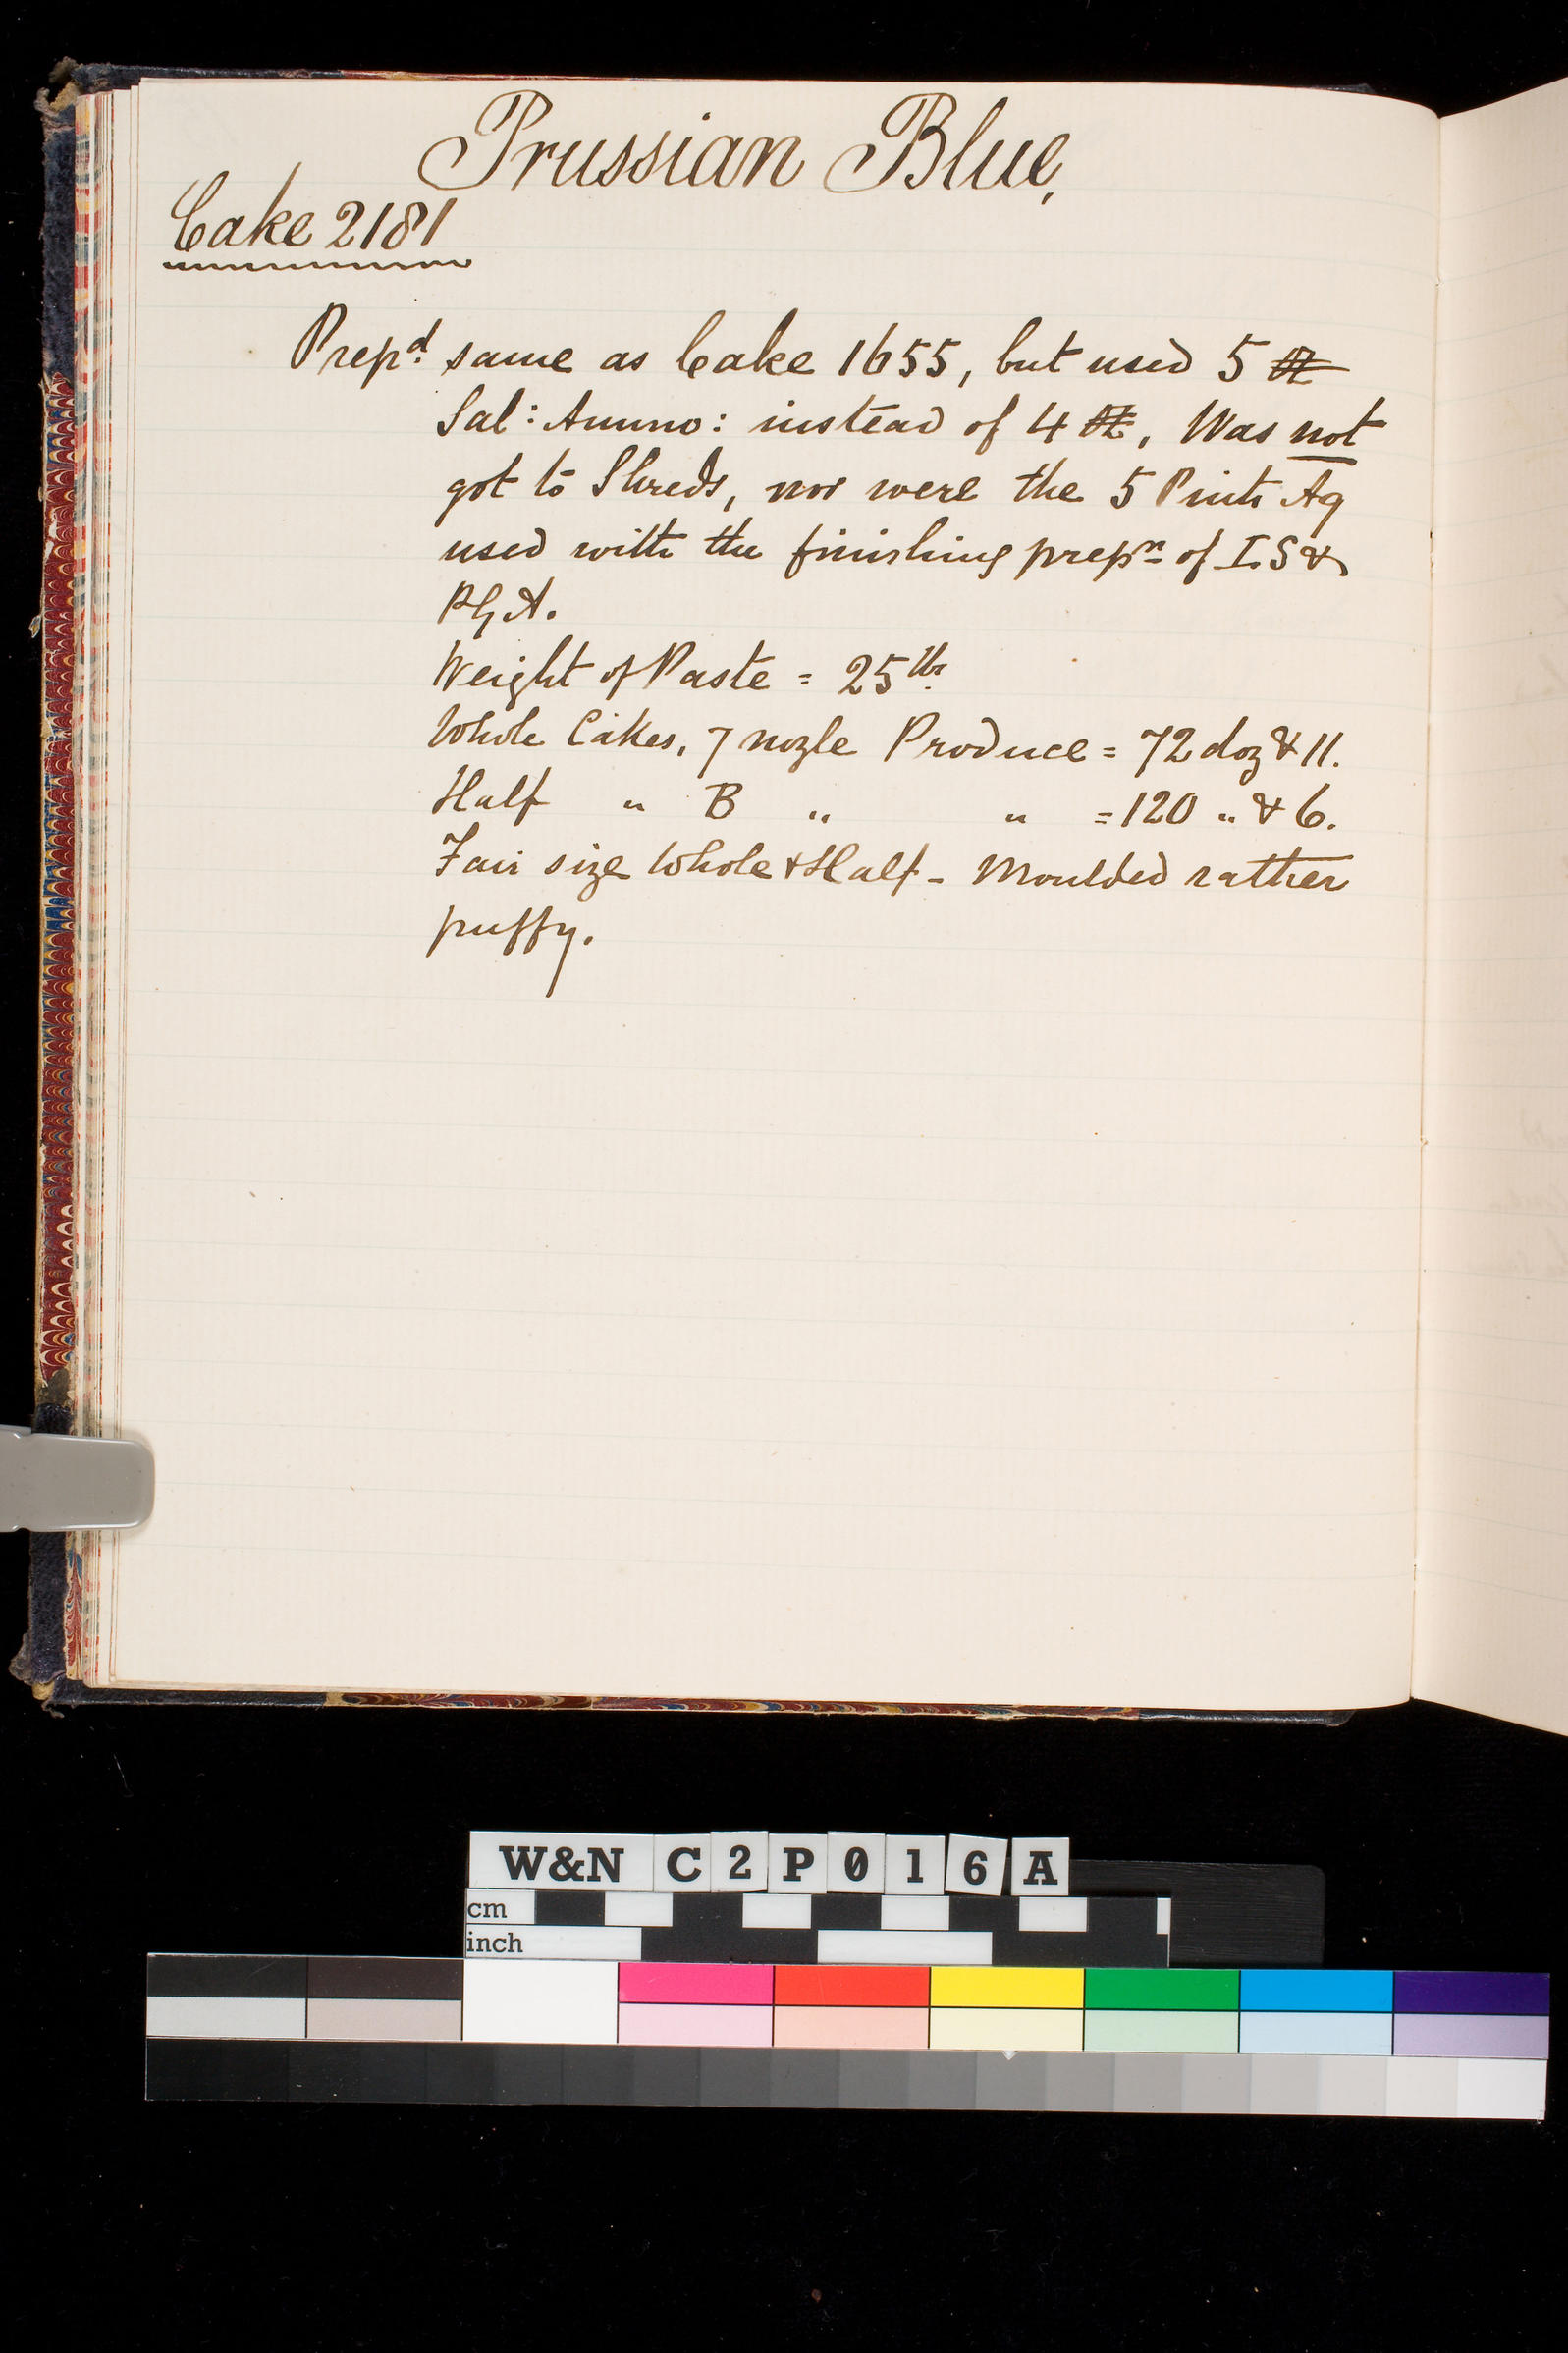 Prussian Blue,
Cake 2181
Prepd. same as Cake 1655, but used 5 lb
Sal: Ammo: instead of 4 lb, Was not
got to Shreds, nor were the 5 Pints Aq
used with the finishing prepn of I.S &
P.G.A.
Weight of Paste = 25 lbs.
Whole Cakes, 7 nozle Produce = 72 doz & 11.
Half " B " " = 120 " & 6.
Fair size Whole & Half - Moulded rather
puffy.
W&N C2P016A
cm
inch